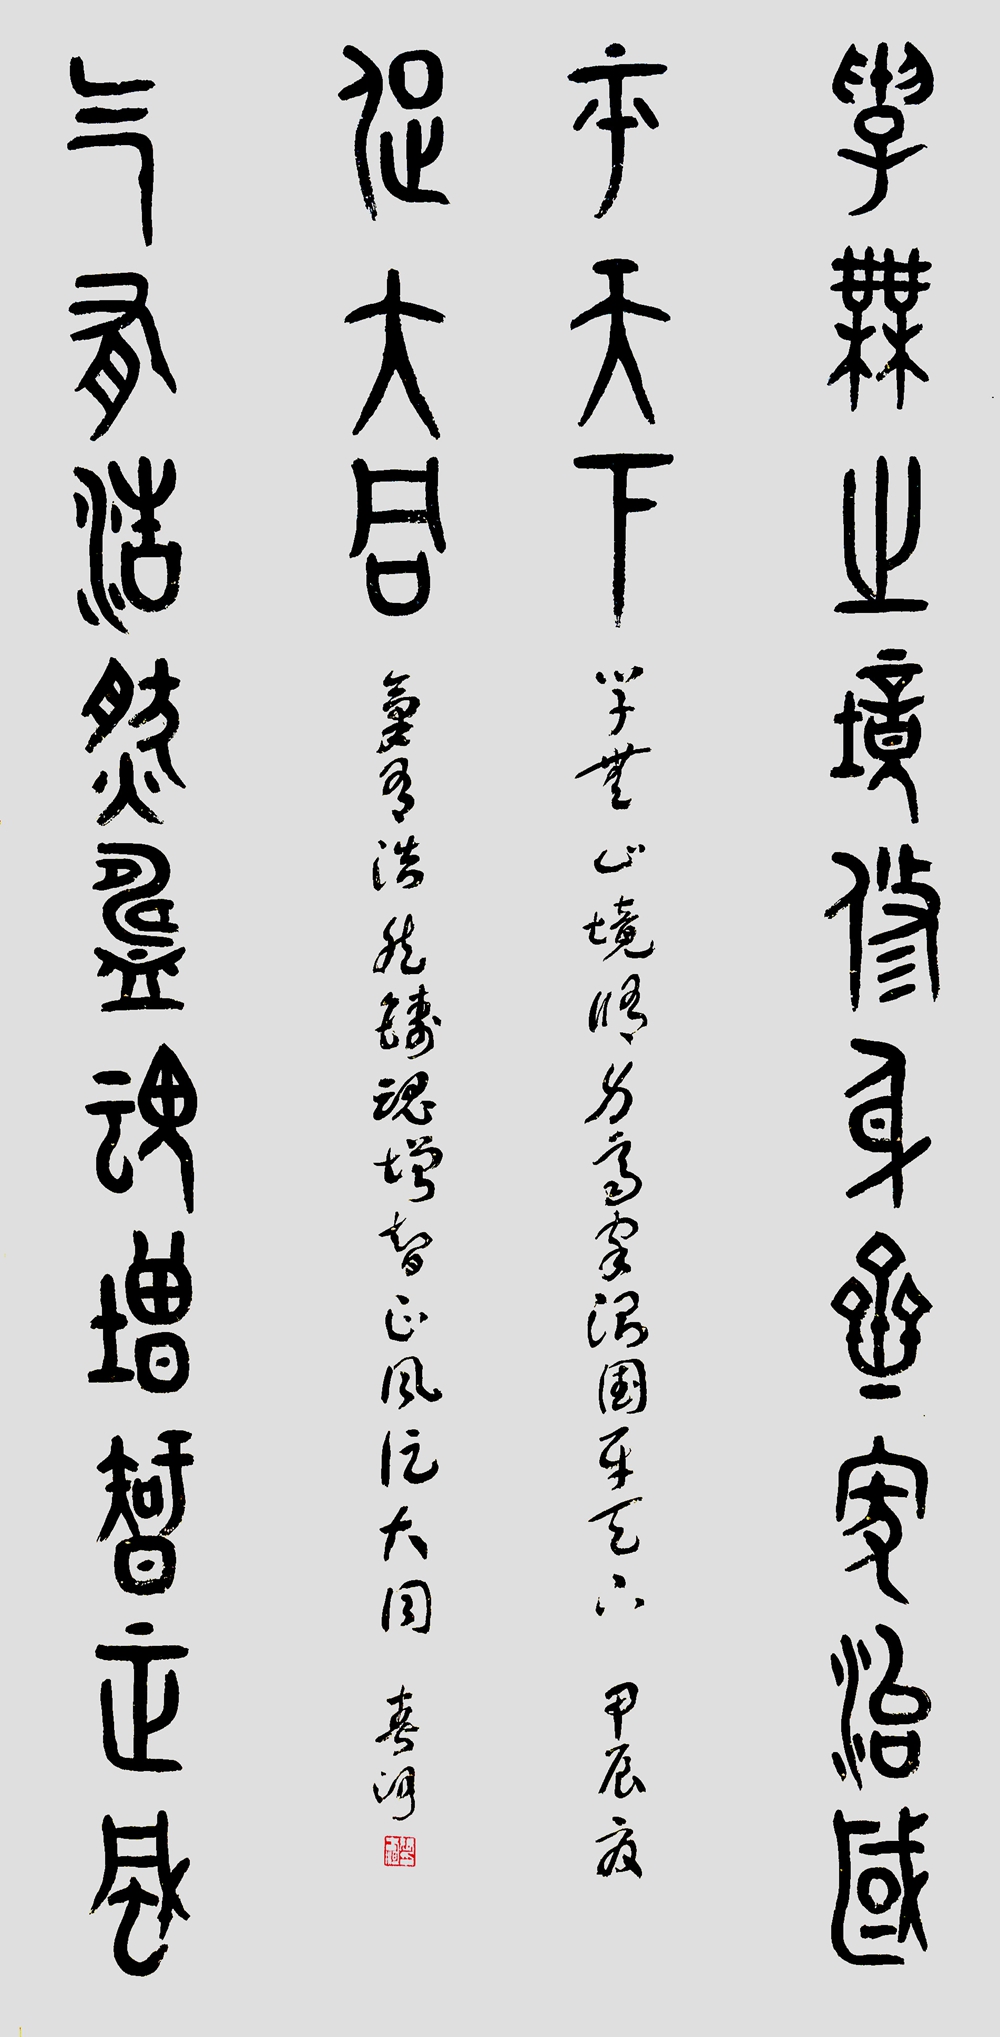 學無止境修身齊家治國
平天下
气有浩然鑄魂增智正風
促大同
学無止境修身齊家治国平天下 甲辰夏
氣有浩然鑄魂增智正風促大同 春